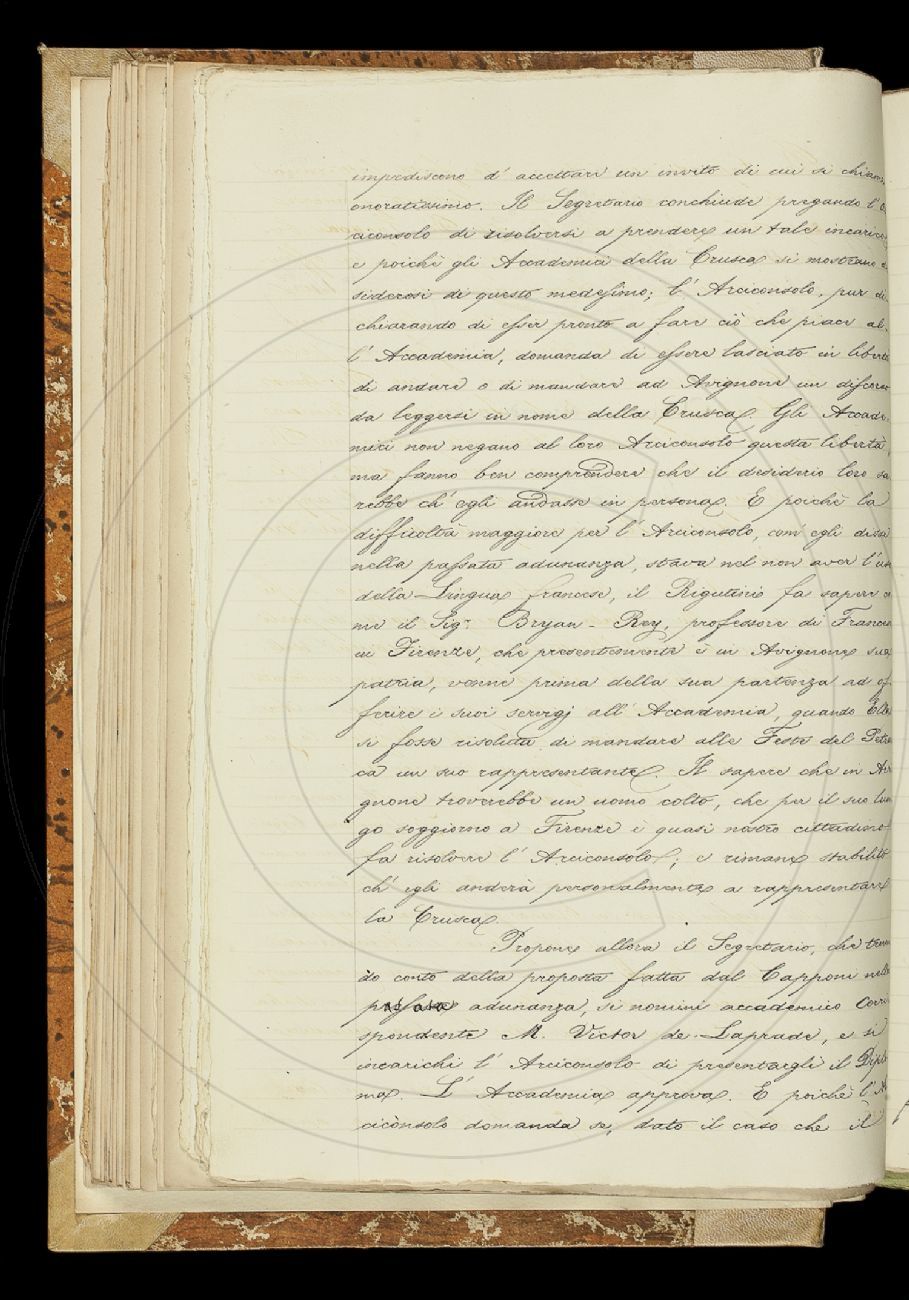 impediscono d'accettare un invito di cui si chiama
onoratissimo. Il Segretario conchiude pregando l'
ciconsolo di risolversi a prendere un tale incarico
e poichè gli Accademici della Crusca si mostrano
siderosi di questo medesimo; l'Arciconsolo, pur di
chiarando di esser pronto a fare ciò che piace al-
l'Accademia, domanda di essere lasciato in libertà
di andare o di mandare ad Avignone un discorso
da leggersi in nome della Crusca. Gli Accade-
mici non negano al loro Arciconsolo questa libertà,
ma fanno ben comprendere che il desiderio loro sa
rebbe ch'egli andasse in persona. E poichè la
difficoltà maggiore per l'Arciconsolo, com'egli disse
nella passata adunanza, stava nel non aver l'uso
della Lingua francese, il Rigutini fa sapere co
me il Sigr. Bryan-Rey, professore di Francese
in Firenze, che presentemente è in Avignone sua
patria, venne prima della sua partenza ad of
ferire i suoi servigj all'Accademia, quando Ella
si fosse risoluta di mandare alle Feste del Petrar
ca un suo rappresentante. Il sapere che in Avi
gnone troverebbe un uomo colto, che per il suo lun
go soggiorno a Firenze è quasi nostro cittadino
fa risolvere l'Arciconsolo; e rimane stabilito
ch'egli anderà personalmente a rappresentare
la Crusca.
Propone allora il Segretario, che tenen
do conto della proposta fatta dal Capponi nella
passata adunanza, si nomini accademico Corri
spondente M. Victor de Laprade, e si
incarichi l'Arciconsolo di presentargli il Diplo
ma. L'Accademia approva. E poichè l'Ar
ciconsolo domanda se, dato il caso che il